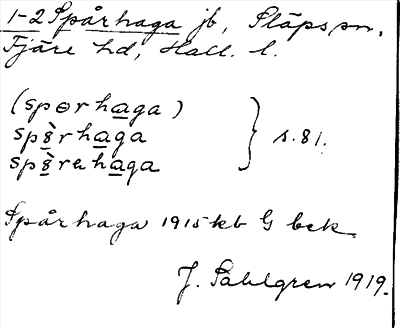 1-2 Spårhaga jb, Släps sn,
Fjäre hd, Hall. l.
(sporhaga)
spèrhaga
spèrahaga } s. 81.
Spårhaga 1915 kb G bek.
J. Sahlgren 1919.